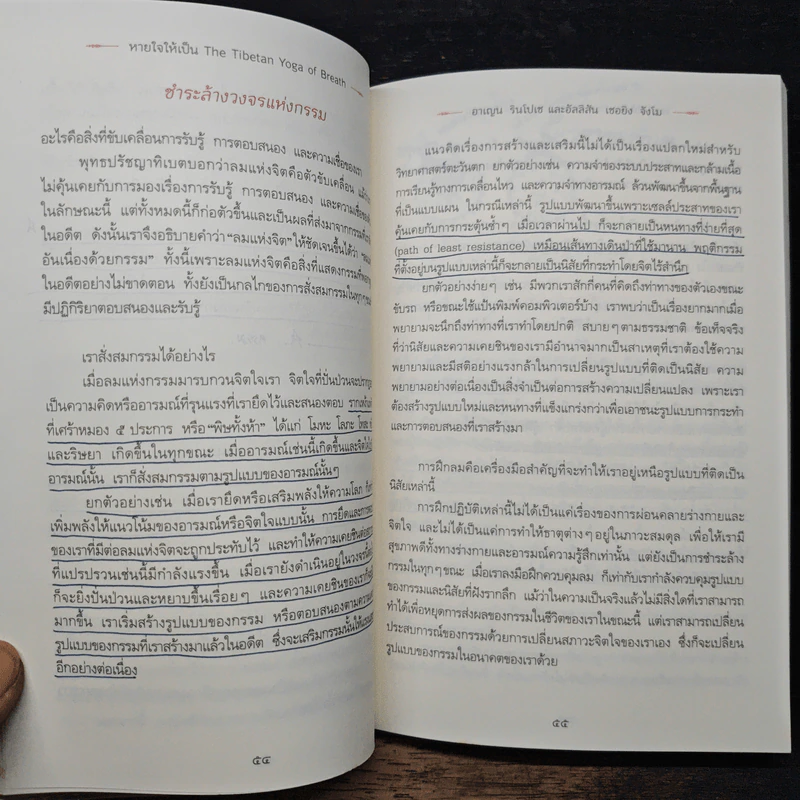 หายใจให้เป็น The Tibetan Yoga of Breath
ชำระล้างวงจรแห่งกรรม
อะไรคือสิ่งที่ขับเคลื่อนการรับรู้ การตอบสนอง และความเชื่อของเรา
พุทธปรัชญาทิเบตบอกว่าลมแห่งจิตคือตัวขับเคลื่อน
ไม่คุ้นเคยกับการมองเรื่องการรับรู้ การตอบสนอง และความเชื่อ
ในลักษณะนี้ แต่ทั้งหมดนี้ก็ก่อตัวขึ้นและเป็นผลที่ส่งมาจากกรรม
ในอดีต ดังนั้นเราจึงอธิบายคำว่า“ลมแห่งจิต”ให้ชัดเจนขึ้นได้ว่า
อันเนื่องด้วยกรรม” ทั้งนี้เพราะลมแห่งจิตคือสิ่งที่แสดงกรรม
ในอดีตอย่างไม่ขาดตอน ทั้งยังเป็นกลไกของการสั่งสมกรรมในทุกๆ
มีปฏิกิริยาตอบสนองและรับรู้
เราสั่งสมกรรมได้อย่างไร
เมื่อลมแห่งกรรมมารบกวนจิตใจเรา จิตใจที่ปั่นป่วนจะ
เป็นความคิดหรืออารมณ์ที่รุนแรงที่เรายึดไว้และสนองตอบ
ที่เศร้าหมอง ๕ ประการ หรือ“พิษทั้งห้า” ได้แก่ โมหะ โลภะ โทสะ
และริษยา เกิดขึ้นในทุกขณะ เมื่ออารมณ์เช่นนี้เกิดขึ้นและ
อารมณ์นั้น เราก็สั่งสมกรรมตามรูปแบบของอารมณ์นั้นๆ
ยกตัวอย่างเช่น เมื่อเรายึดหรือเสริมพลังให้ความโลภ
เพิ่มพลังให้แนวโน้มของอารมณ์หรือจิตใจแบบนั้น การยึดและการ
ของเราที่มีต่อลมแห่งจิตจะถูกประทับไว้ และทำให้ความเคยชิน
ที่แปรปรวนเช่นนี้มีกำลังแรงขึ้น เมื่อเรายังดำเนินอยู่ในวงจร
ก็จะยิ่งปั่นป่วนและหยาบขึ้นเรื่อยๆ และความเคยชินของเรา
มากขึ้น เราเริ่มสร้างรูปแบบของกรรม หรือตอบสนองตาม
รูปแบบของกรรมที่เราสร้างมาแล้วในอดีต ซึ่งจะเสริมกรรมนั้นให้
อีกอย่างต่อเนื่อง
๕๔
อาเญน รินโปเช และอัลลิสัน เชอยิง จังโม
แนวคิดเรื่องการสร้างและเสริมนี้ไม่ได้เป็นเรื่องแปลกใหม่สำหรับ
วิทยาศาสตร์ตะวันตก ยกตัวอย่างเช่น ความจำของระบบประสาทและกล้ามเนื้อ
การเรียนรู้ทางการเคลื่อนไหว และความจำทางอารมณ์ ล้วนพัฒนาขึ้นจากพื้นฐาน
ที่เป็นแบบแผน ในกรณีเหล่านี้ รูปแบบพัฒนาขึ้นเพราะเซลล์ประสาทของเรา
คุ้นเคยกับการกระตุ้นซ้ำๆ เมื่อเวลาผ่านไป ก็จะกลายเป็นหนทางที่ง่ายที่สุด
(path of least resistance) เหมือนเส้นทางเดินป่าที่ใช้มานาน พฤติกรรม
ที่ตั้งอยู่บนรูปแบบเหล่านี้ก็จะกลายเป็นนิสัยที่กระทำโดยจิตไร้สำนึก
ยกตัวอย่างง่ายๆ เช่น มีพวกเราสักกี่คนที่คิดถึงท่าทางของตัวเองขณะ
ขับรถ หรือขณะใช้แป้นพิมพ์คอมพิวเตอร์บ้าง เราพบว่าเป็นเรื่องยากมากเมื่อ
พยายามจะนึกถึงท่าทางที่เราทำโดยปกติ สบายๆ ตามธรรมชาติ ข้อเท็จจริง
ที่ว่านิสัยและความเคยชินของเรามีอำนาจมากเป็นสาเหตุที่เราต้องใช้ความ
พยายามและมีสติอย่างแรงกล้าในการเปลี่ยนรูปแบบที่ติดเป็นนิสัย ความ
พยายามอย่างต่อเนื่องเป็นสิ่งจำเป็นต่อการสร้างความเปลี่ยนแปลง เพราะเรา
ต้องสร้างรูปแบบใหม่และหนทางที่แข็งแกร่งกว่าเพื่อเอาชนะรูปแบบการกระทำ
และการตอบสนองที่เราสร้างมา
การฝึกลมคือเครื่องมือสำคัญที่จะทำให้เราอยู่เหนือรูปแบบที่ติดเป็น
นิสัยเหล่านี้
การฝึกปฏิบัติเหล่านี้ไม่ได้เป็นแค่เรื่องของการผ่อนคลายร่างกายและ
จิตใจ และไม่ได้เป็นแค่การทำให้ธาตุต่างๆ อยู่ในภาวะสมดุล เพื่อให้เรามี
สุขภาพดีทั้งทางร่างกายและอารมณ์ความรู้สึกเท่านั้น แต่ยังเป็นการชำระล้าง
กรรมในทุกๆ ขณะ เมื่อเราลงมือฝึกควบคุมลม ก็เท่ากับเรากำลังควบคุมรูปแบบ
ของกรรมและนิสัยที่ฝังรากลึก แม้ว่าในความเป็นจริงแล้วไม่มีสิ่งใดที่เราสามารถ
ทำได้เพื่อหยุดการส่งผลของกรรมในชีวิตของเราในขณะนี้ แต่เราสามารถเปลี่ยน
ประสบการณ์ของกรรมด้วยการเปลี่ยนสภาวะจิตใจของเราเอง ซึ่งก็จะเปลี่ยน
รูปแบบของกรรมในอนาคตของเราด้วย
๕๕